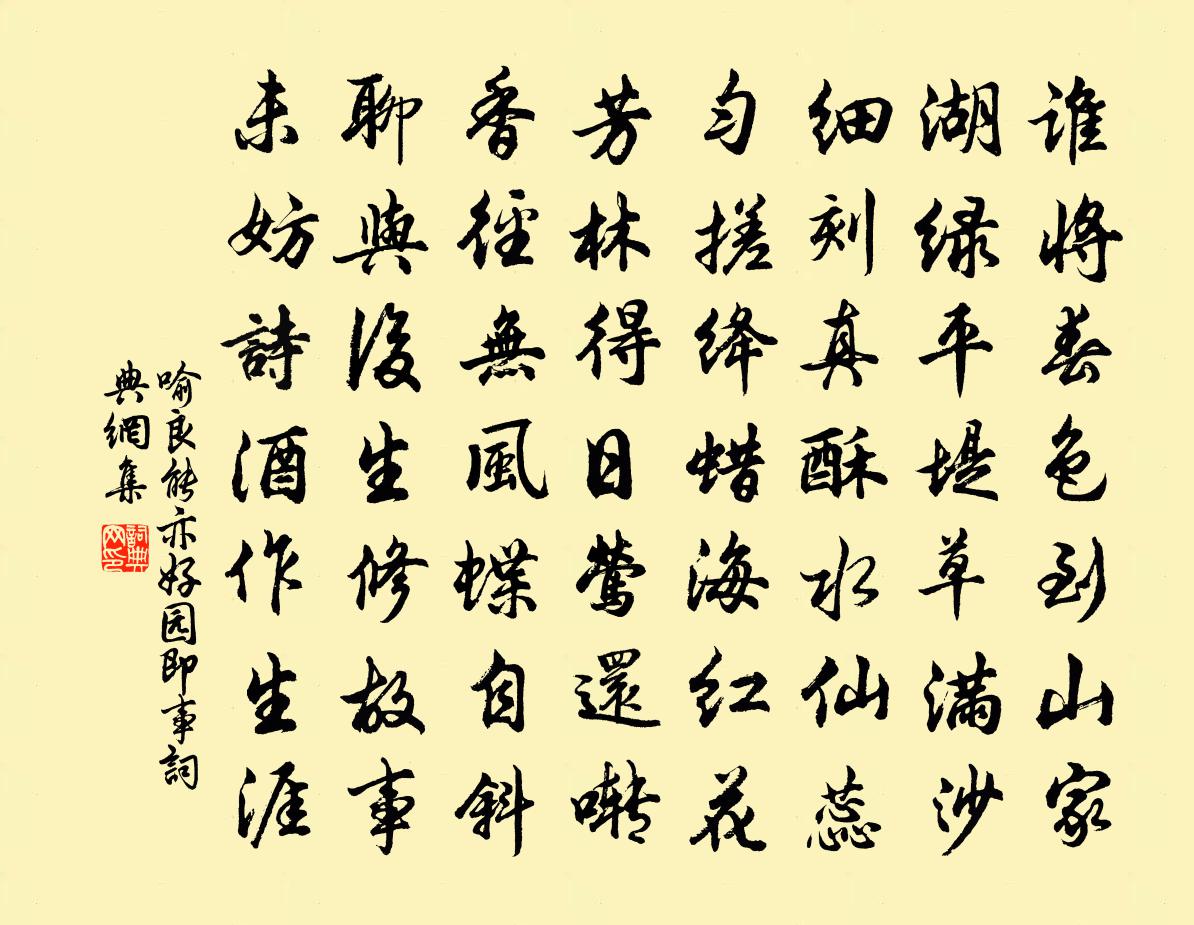 谁将春色到山家
湖绿平堤草满沙
细刻真酥水仙蕊
匀搓绛蜡海红花
芳林得日莺還啭
香径無風蝶自斜
聊與後生修故事
未妨詩酒作生涯
喻良能亦好园即事詞
典網集
詞典网印